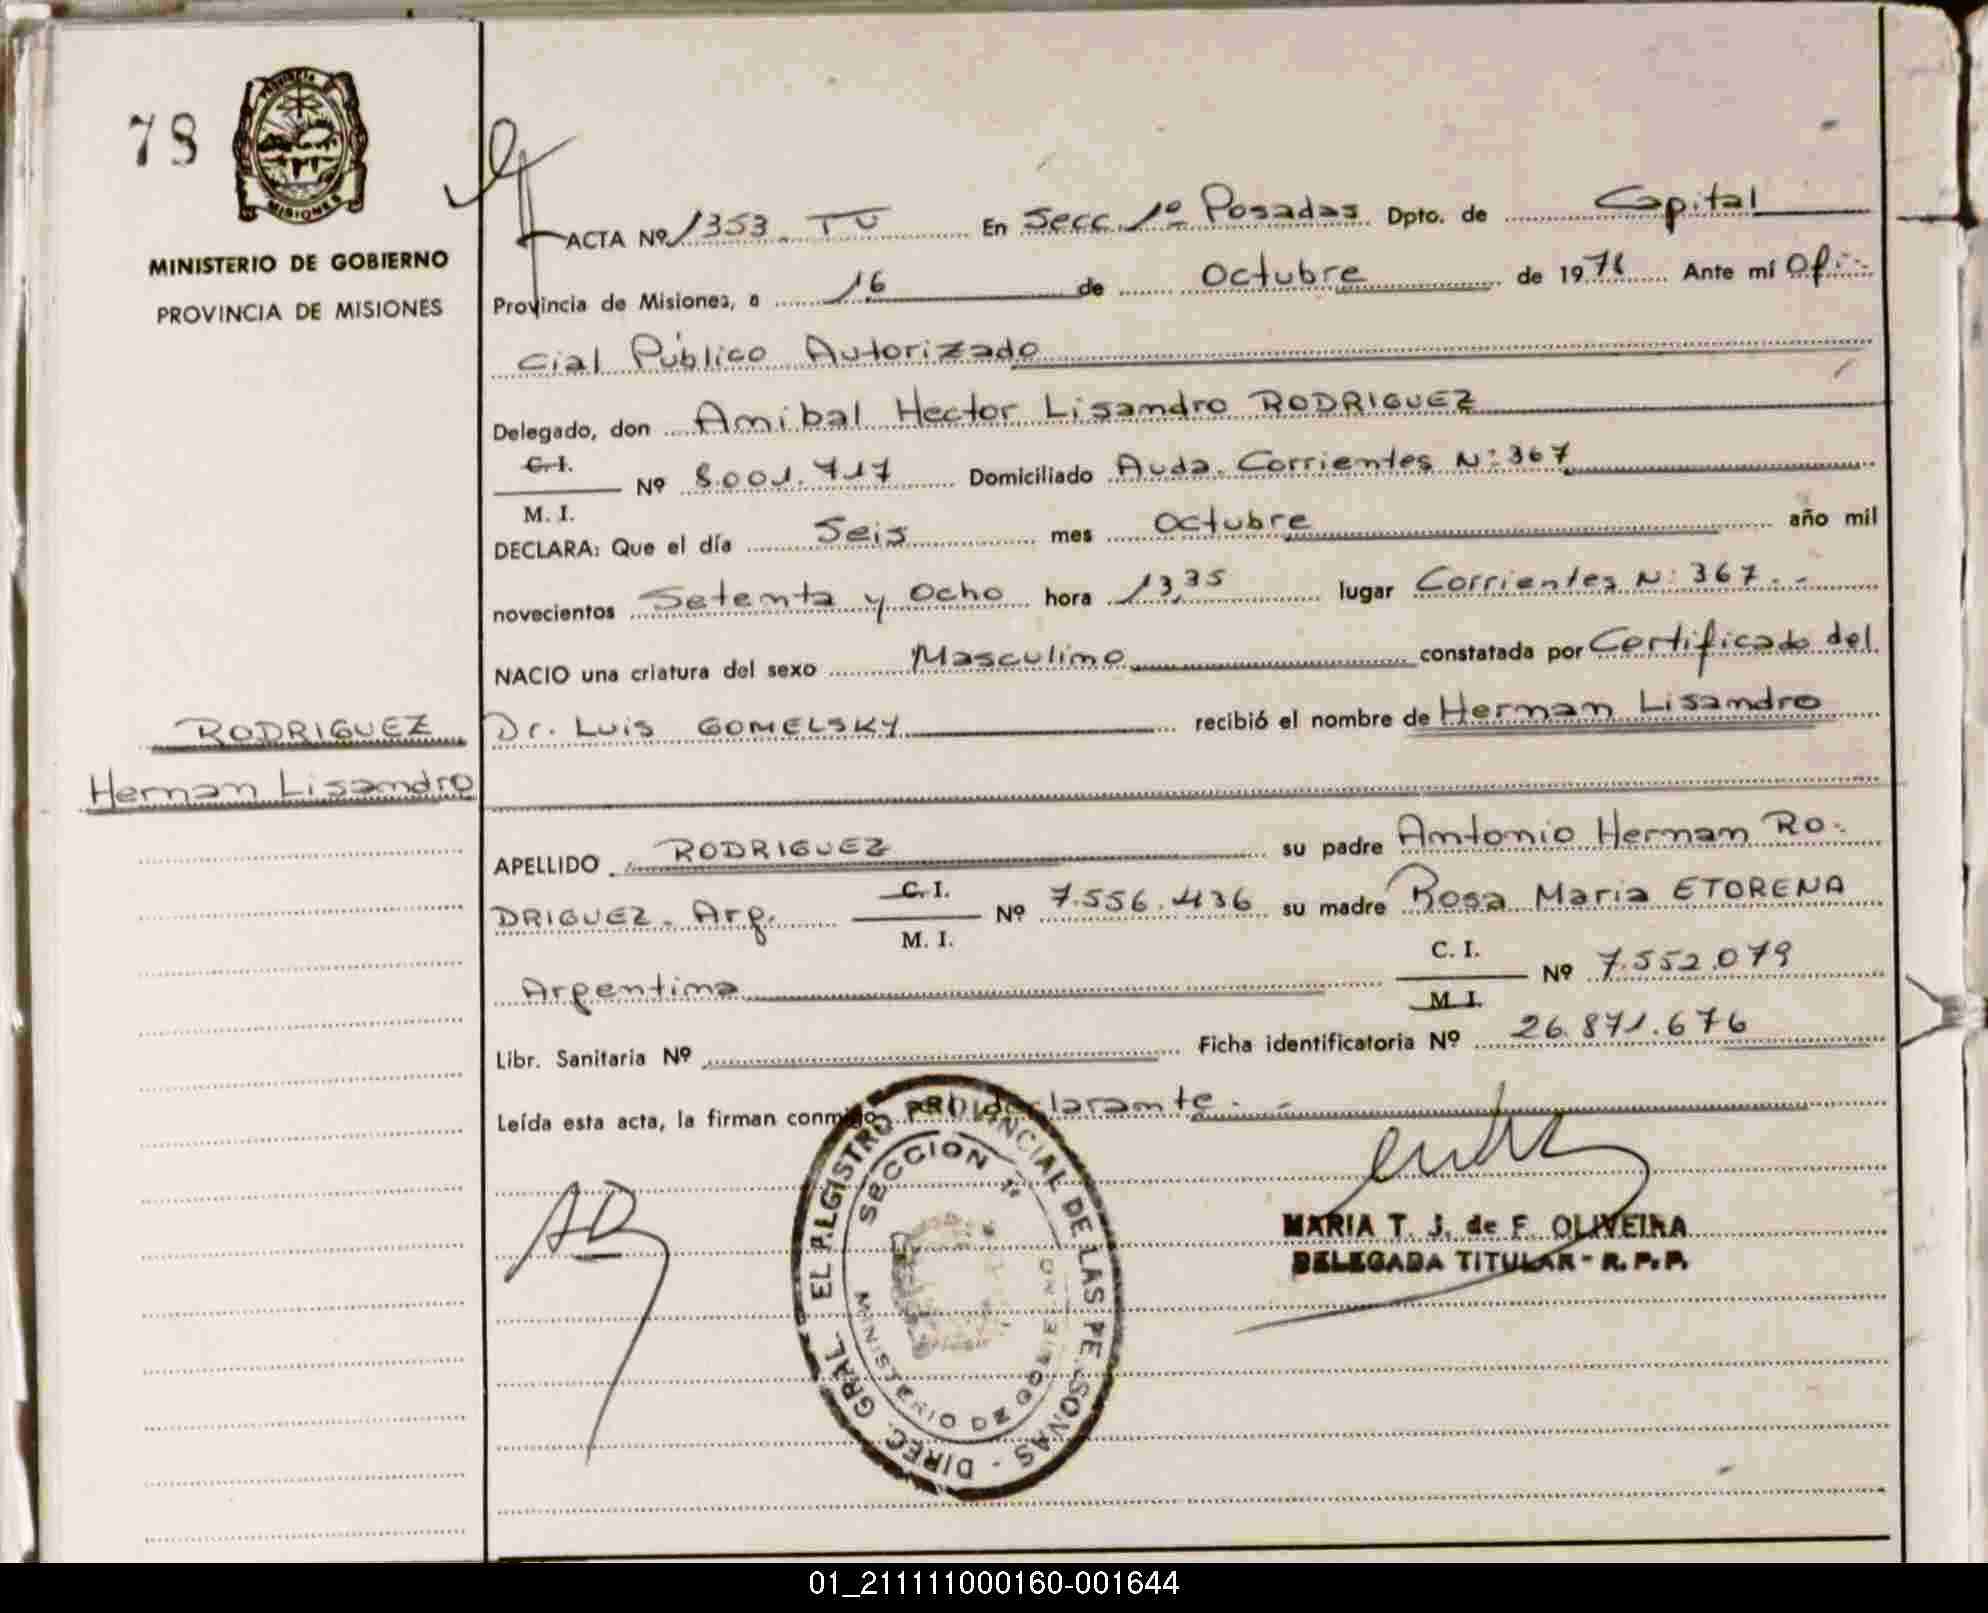 78
MINISTERIO DE GOBIERNO
PROVINCIA DE MISIONES
ACTA Nº 1353 TU En Secc. 1º Posadas Dpto. de Capital
Provincia de Misiones, a 16 de Octubre de 1978 Ante mí Ofi-
cial Público Autorizado
Delegado, don Anibal Hector Lisandro RODRIGUEZ
C. I.
M. I. Nº 8.001.717 Domiciliado Avda. Corrientes Nº 367
DECLARA: Que el día Seis mes Octubre año mil
novecientos Setenta y Ocho hora 13,35 lugar Corrientes Nº 367.-
NACIO una criatura del sexo Masculino constatada por Certificado del
Dr. Luis GOMELSKY recibió el nombre de Hernan Lisandro
RODRIGUEZ
Hernan Lisandro
APELLIDO RODRIGUEZ su padre Antonio Hernan RO-
DRIGUEZ. Arg. C. I.
M. I. Nº 7.556.436 su madre Rosa Maria ETORENA
Argentina C. I.
M. I. Nº 7.552.079
Libr. Sanitaria Nº Ficha identificatoria Nº 26.871.676
Leída esta acta, la firman conmigo declarante.-
DIREC. GRAL. EL REGISTRO PROVINCIAL DE LAS PERSONAS -
SECCION 1ª
MINISTERIO DE GOBIERNO
MARIA T. J. de F. OLIVEIRA
DELEGADA TITULAR - R. P. P.
PROVINCIA
MISIONES
01_211111000160-001644